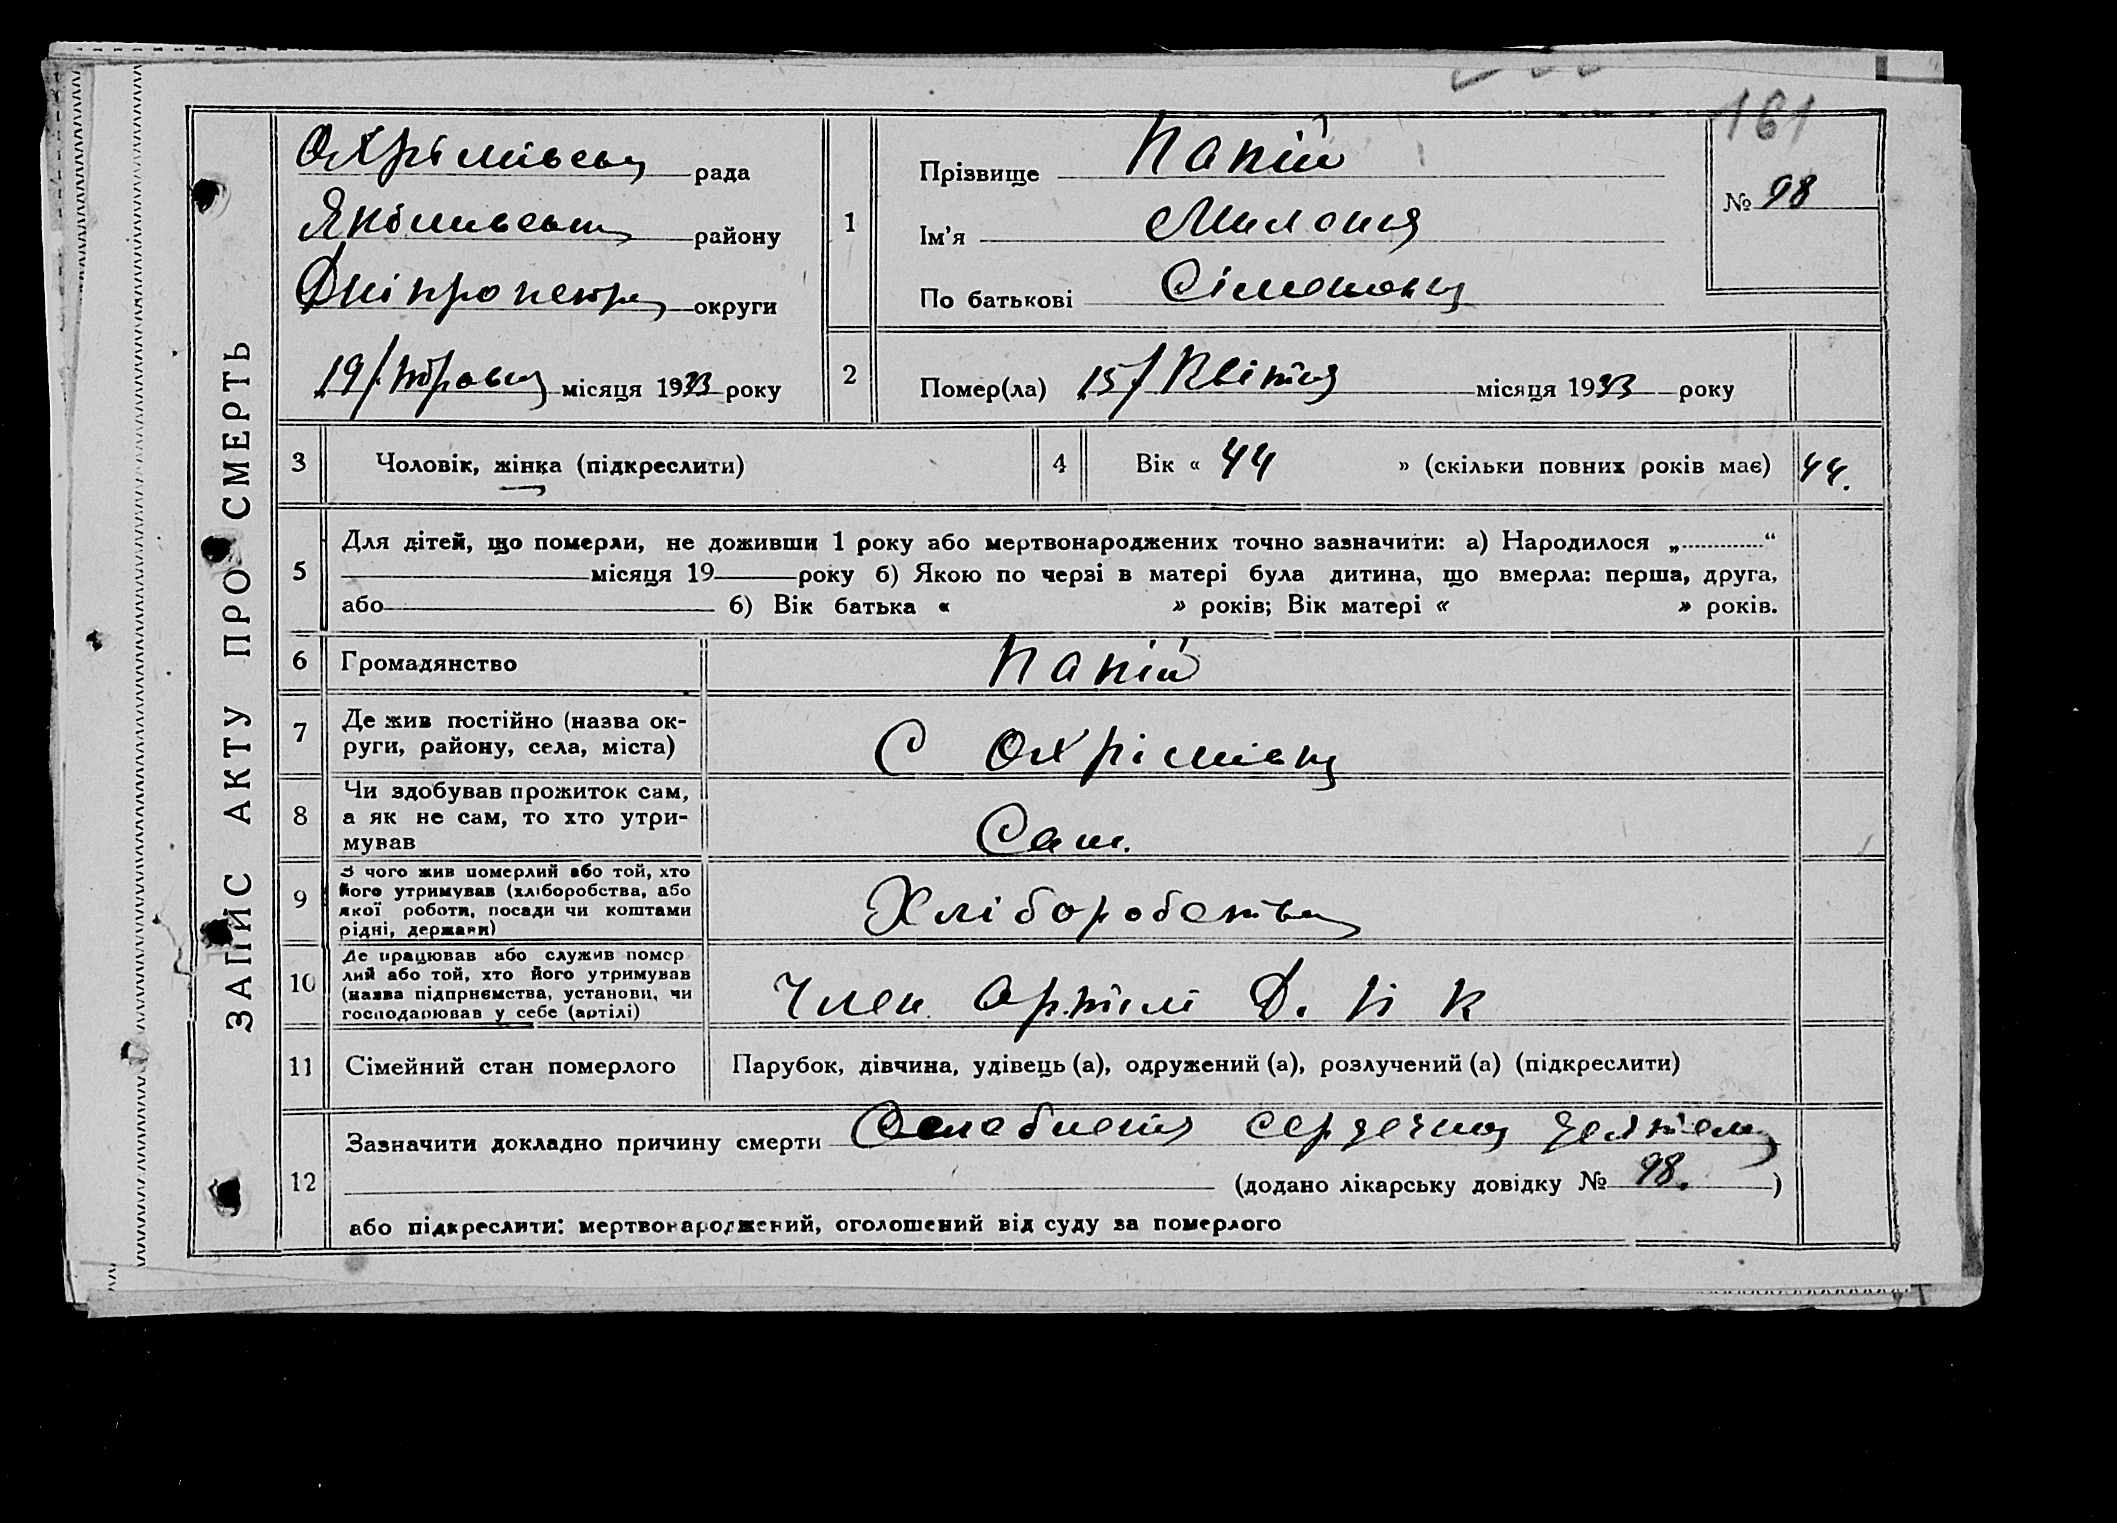 161
ЗАПИС АКТУ ПРО СМЕРТЬ
Охрімівська рада
Якимівськ району
Дніпропетр округи
19/ травня місяця 1933 року
1
Прізвище Папій
Ім’я
По батькові
№ 98
2
Помер(ла) 15/ Квітня місяця 1933 року
3 Чоловік, жінка (підкреслити)
4 Вік « 44 » (скільки повних років має) 44.
5
Для дітей, що померли, не доживши 1 року або мертвонароджених точно зазначити: а) Народилося „ “
місяця 19 року б) Якою по черзі в матері була дитина, що вмерла: перша, друга,
або 6) Вік батька « » років; Вік матері « » років.
6 Громадянство Папій
7
Де жив постійно (назва ок-
руги, району, села, міста)
С Охрімівка
8
Чи здобував прожиток сам,
а як не сам, то хто утри-
мував
Сам.
9
З чого жив померлий або той, хто
його утримував (хліборобства, або
якої роботи, посади чи коштами
рідні, держави)
Хліборобства
10
Де працював або служив помер
лий або той, хто його утримував
(назва підприємства, установи, чи
господарював у себе (артілі)
Член артілі
11 Сімейний стан померлого
Парубок, дівчина, удівець (а), одружений (а), розлучений (а) (підкреслити)
12
Зазначити докладно причину смерти сердечна
(додано лікарську довідку № 98. )
або підкреслити: мертвонароджений, оголошений від суду за померлого